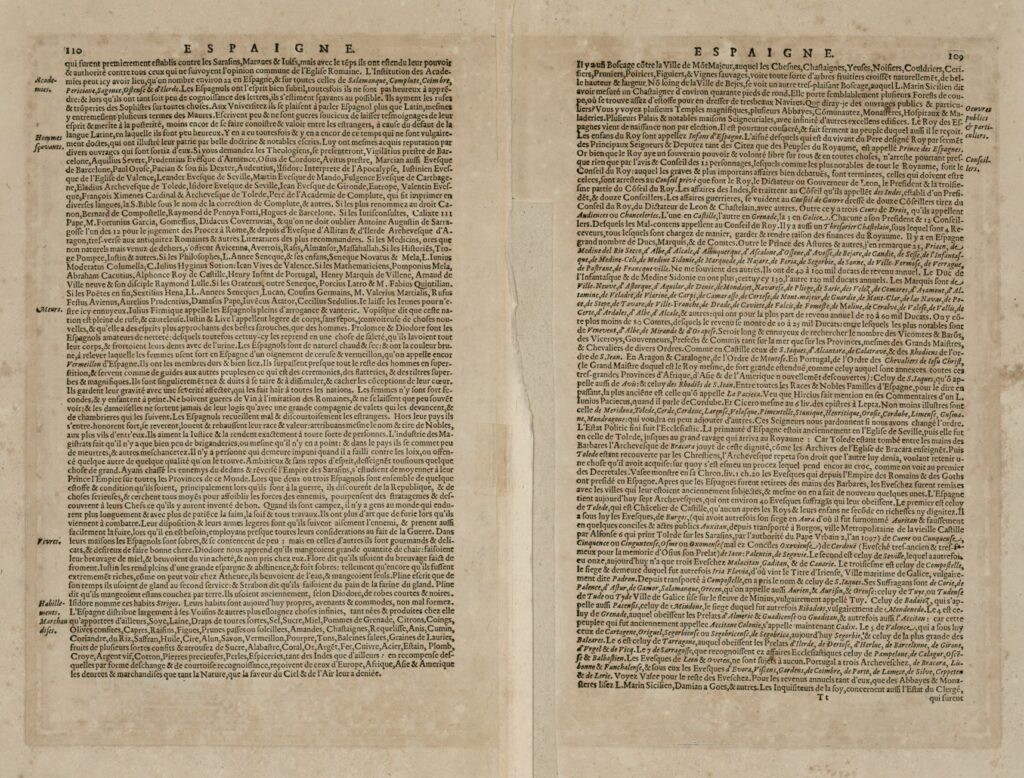 110
ESPAIGNE.
qui furent premierement establis contre les Sarasins, Maranes & Iuifs, mais avec le tẽps ils ont estendu leur pouvoir
& authorité contre tous ceux qui ne suivoyent l'opinion commune de l'Eglise Romaine. L'institution des Acade-
Acade-
mies.
mies peut icy avoir lieu, qu'on nombre environ 22 en Espagne, & sur toutes celles de Salamanque, Complute, Coimbre,
l'Ilerde. Les Espagnols ont l'esprit bien subtil, toutesfois ils ne sont pas heureux à appré-
dre: & lors qu'ils ont tant soit peu de cognoissance des lettres, ils s'estiment sçavans au possible. Ils ayment les ruses
& tröperies des Sophistes sur toutes choses. Aux Vniversitez ils se plaisent à parler Espagnol plus que Latin, mes'y
entremeslent plusieurs termes des Maures. Escrivent peu & ne sont guerres soucieux de laisser tesmoignages de leur
esprit & merite à la posterité, moins encor de se faire connoistre & valoir entre les estrangers, à cause du defaut de la
Hommes
sçavants.
langue Latine, en laquelle ils sont peu heureux. Y en a eu toutesfois & y en a encor de ce temps qui ne sont vulgaire-
ment doctes, qui ont illustré leur patrie par belle doctrine & notables escrits. Luy ont mesmes acquis reputation par
divers ouvrages qui sont sortis d'eux. Si vous demandez les Theologiens, se presenteront, Vigilantius prestre de Bar-
celone, Aquilius Severe, Prudentius Evesque d'Armence, Osius de Cordoue, Avitus prestre, Marcian aussi Evesque
de Barcelone, Paul Orose, Pacian & son fils Dexter, Audentius, Iustinien Eves-
que de l'Eglise de Valence, Leander Evesque de Seville, Martin Evesque de Mando, Fulgence Evesque de Carthage-
ne, Eladius Archevesque de Tolede, Isidore Evesque de Seville, Iean Evesque de Gironde, Europe, Valentin Eves-
que, François Ximenes Cardinal & Archevesque de Tolede, Pere de l'Academie de Complute, qui fit imprimer en
diverses langues, la S. Bible sous le nom de la correction de Complute, & autres. Si les plus renommez au droit Ca-
non, Bernard de Compostelle, Raymond de Penna Fort, Hugues de Barcelon. Si les Iurisconsultes, Calixte III
Pape, M. Fortunius Garcia, Gomesius, Didacus Coverruvias, & qu'on ne doit oublier Antoine Augustin de Sarra-
gosse l'un des 12 pour le jugement des Procez à Rome, & depuis Evesque d'Allifan & d'Ilerde Archevesque d'A-
ragon, tres-versé aux antiquitez Romaines & autres Literatures des plus recommandees. Si les Medicins, ores que
non naturels mais venuz de dehors, s'offrent Avicenne, Averrois, Rasis, Almansor, Massahallah. Si les Historiës, Tro-
ge Pompee, Iustin & autres. Si les Philosophes, L. Annee Seneque, & ses enfans, Seneque Novatus & Mela, L. Iunius
Moderatus Columella, C. Iulius Hyginus Sotion: Iean Vives de Valence. Si les Mathematiciens, Pomponius Mela,
Abraham Cacutius, Alphonse Roy de Castille, Henry Infant de Portugal, Henry Marquis de Villene, Arnaud de
Ville neuve & son disciple Raymond Lulle. Si les Orateurs, outre Seneque, Porcius Latro & M. Fabius Quintilian.
Si les Poëtes en fin, Sextilius Hena, LL. Annees Seneques, Lucan, Cousins Germains, M. Valerius Martialis, Rufus
Festus Avienus, Aurelius Prudentius, Damasus Pape, Iuvẽcus Arator, Cecilius Sedulius. Ie laisse les Ieunes pour n'e-
Mœurs.
stre icy ennuyeux. Iulius Firmique appelle les Espagnols pleins d'arrogance & vanterie. Vopisque dit que ceste na-
tion est pleine de ruse, & cauteleuse. Iustin & Livel l'appellent legere de corps, convoiteuse de choses nou-
velles, & qu'elle a des esprits plus approchants des bestes farouches, que des hommes. Ptolomee & Diodore sont les
Espagnols amateurs de netteté: desquels toutesfois cettuy-cy les reprend en une chose de saleté, qu'ils lavoient tout
leur corps, & frottoient leurs dents avec de l'urine. Les Espagnols sont de naturel chaud & sec: & ont la couleur bru-
ne, à relever laquelle les femmes usent fort en Espagne d'un oignement de ceruse & vermeillon, qu'on appelle encor
Vermeillon d'Espagne. Ils ont les membres durs & bien liez. Ils surpassent presque tout le reste des hommes en super-
stition, & servent comme de guides aux autres peuples en ce qui est des ceremonies, des flatteries, & des tiltres super-
bes & magnifiques. Ils sont singulierement nes & duits à se taire & à dissimuler, & cacher les conceptions de leur cœur.
Ils gardent leur gravité avec une severité affectee, qui les fait haïr à toutes les nations. Les femmes n'y sont fort fe-
condes, & y enfantent à peine. Ne boivent guerres de Vin à l'imitation des Romaines, & ne se laissent que peu souvët
voir; & les damoiselles ne sortent jamais de leur logis qu'avec une grande compagnie de valets qui les devancent, &
de chambrieres qui les suivent. Les Espagnols recueillent mal & discourtoisement les estrangers. Hors leur pays ils
s'entre-honorent fort, se reverent, louent & rehaussent leur race & valeur: attribuans mesme le nom & titre de Nobles,
aux plus vils d'entr'eux. Ils aiment la Iustice & la rendent exactement à toute sorte de personnes. L'industrie des Ma-
gistrats fait qu'il n'y a que bien peu de briganderies, ou mesme qu'il n'y en a point; & dans le pays ils se commet peu
de meurtres, & autres meschancetez. Il n'y a personne qui demeure impuni quand il a failli contre les loix, ou offen-
cé quelque autre de quelque qualité qu'on le trouve. Ambitieux & sans repos d'esprit, desseignent tousjours quelque
chose de grand. Ayans chassé les ennemys du dedans & réversé l'Empire des Sarasins, s'estudient de moyenner à leur
Prince l'Empire sur toutes les Provinces de ce Monde. Lors que deux ou trois Espagnols sont ensemble de quelque
estoffe & condition qu'ils soient, principalement lors qu'ils sont à la guerre, ils discourent de la Republique, & de
choses serieuses, & cerchent tous moyës pour affoiblir les forces des ennemis, pourpensent des stratagemes & des-
couvrent à leurs Chefs ce qu'ils y auront inventé de bon. Quand ils sont campez, il n'y a gens au monde qui endu-
rent plus longuement & avec plus de patiëce la faim, la soif & tous travaux. Ils ont plus d'art que de furie lors qu'ils
viennent à combatre. Leur disposition & leurs armes legeres sont qu'ils suivent aisément l'ennemi, & prennent aussi
facilement la fuite, lors qu'il en est besoin; employans presque toutes leurs considerations au fait de la Guerre. Dans
Vivres.
leurs maisons les Espagnols sont sobres, & se contentent de peu: mais en celles d'autres ils sont gourmands & deli-
cats, & desireux de faire bonne chere. Diodore nous apprend qu'ils mangeoient grande quantité de chair: faisoient
leur breuvage de miel, & beuvoient du vin acheté, & non pris chez eux. Flore dit qu'ils usoient du breuvage fait de
froment. Iustin les rend plins d'une grande espargne & abstinence, & fort sobres: tellement qu'encor qu'ils fussent
extremement riches, comme on peut voir chez Athenee, ils beuvoient de l'eau, & mangeoient seuls. Pline escrit que de
son temps ils usoient de gland au second service: & Strabon dit qu'ils faisoient du pain de la farine du gland. Pline
dit qu'ils mangeoient estans couchez par terre. Ils usoient anciennement, selon Diodore, de robes courtes & noires.
Habille-
ments.
Marchan
dises.
Isidore nomme ces habits Striges. Leurs habits sont aujourd'huy propres, avenants & commodes, non mal formez.
L'Espagne distribue largement à ses Voisins & autres plus esloignez choses infinies, tant nees & produites chez elle
qu'apportees d'ailleurs, Soye, Laine, Draps de toutes sortes, Sel, Sucre, Miel, Pommes de Grenade, Citrons, Coings,
Olives confites, Capres, Raisins, Figues, Prunes passes ou solides, Amandes, Chastaignes, Requelisse, Anis, Cumin,
Coriandre, du Riz, Saffran, Huile, Cire, Alun, Savon, Vermeillon, Pourpre, Tons, Baleines salees, Graines de Laurier,
fruits de plusieurs sortes confits & arrousez de Sucre, Alabastre, Coral, Or, Argét, Fer, Cuivre, Acier, Estain, Plomb,
Croye, Argent vif, Cotton, Pierres precieuses, Perles, Espiceries, tant des Indes que d'ailleurs: en recompense des-
quelles par forme d'eschange & de courtoise recognoissance, reçoivent de ceux d'Europe, Afrique, Asie & Amerique
les denrees & marchandises que tant la Nature, que la faveur du Ciel & de l'Air leur a deniée.
ESPAIGNE.
109
Il y a un Boscage côtre la Ville de MôtMajeur, auquel les Chesnes, Chastaignes, Yeuses, Noisiers, Couldriers, Ceri-
siers, Pruniers, Poiriers, Figuiers, & Vignes sauvages, voire toute sorte d'arbres fruitiers croissët naturellemët, de bel-
le hauteur & longueur. Nõ loing de la Ville de Bejes, se voit un autre tres-plaisant Boscage, auquel L. Marin Sicilien dit
avoir mesuré un Chastaignier d'environ quarante pieds de rond. Elle porte semblablement plusieurs Forests de cou-
pe, où se trouve assez d'estoffe pour en dresser de tresbeaux Navires. Que diray-je des ouvrages publics & particu-
Oeuvres
publics
& parti-
culiers.
liers? Vous y voyez plusieurs Temples magnifiques, plusieurs Abbayes, Convents, Monasteres, Hospitaux & Ma-
laderies. Plusieurs Palais & notables maisons Seigneuriales, avec infinité d'autres excellens edifices. Le Roy des Es-
pagnes vient de naissance non par election. Et il est pourtant couronné, & fait serment au peuple duquel aussi il le reçoit.
Les enfans du Roy sont appellez Infans d'Espagne. L'aisné desquels qui est survivant du Pere designé Roy par serment
des Principaux Seigneurs & Deputez tant des Citez que des Peuples du Royaume, est appellé Prince des Espagnes.
Conseil.
Or bien que le Roy ayt un souverain pouvoir & volonté libre sur tous & en toutes choses, n'arreste pourtant pres-
que rien que par l'avis & Conseil des 12 personnages, lesquels comme les plus notables de tout le Royaume, sont le
Conseil du Roy: auquel les graves & plus importans affaires bien debatuës, sont terminees, celles qui doivent estre
celees, sont arrestees au Conseil privé que sont le Roy, le Dictateur ou Gouverneur de Leon, le President & la troisie-
sme partie du Côseil du Roy. Les affaires des Indes, se traitent au Côseil qu'ils appellët des Indes, establi d'un Presi-
dët, & douze Conseillers. Les affaires guerrieres, se vuident au Conseil de Guerre dressé de douze Côseillers tirez du
Conseil du Roy, du Dictateur de Leon & Chastelain, avec autres. Outre ce y a trois Cours de Droit, qu'ils appellent
Audiences ou Chanceleries. L'une en Castille, l'autre en Grenade, la 3 en Galice. Chacune a son President & 12 Conseil-
lers. Desquels les Mal-contens appellent au Conseil du Roy. Il y a aussi un Thresorier Chastelain, sous lequel sont 4 Re-
ceveurs, sous lesquels sont chargez de manier, garder & rendre raison des finances du Royaume. Il y a en Espagne
grand nombre de Ducs, Marquis, & de Comtes. Outre le Prince des Astures & autres, j'en remarque 23,
Medine del Rio Secco, d'Albe, d'Alcala, d'Albuquerque, d'Ascalone, d'Ossune, d'Avasse, de Bejare, de Candie, de Sesse, de l'Infantas-
que, de Medine-Celi, de Medine Sidonie, de Marquede, de Najare, de Feria, de Segorbe, de Sarne, de Ville Formose, de Verrague,
de Pastrane, de Françaville. Ne me souvient des autres. Ils ont de 40 à 100 mil ducats de revenu annuel. Le Duc de
l'Infantasque & de Medine Sidonie en ont plus; cettuy-cy 130, l'autre 120 mil ducats annuels. Les Marquis sont de
Ville-Neuve, d'Astorque, d'Aquilar, de Denie, de Mondejar,
Cerre, d'Ardales, d'Albe, d'Alcale, & autres: qui ont pour la plus part de revenu annuel de 10 à 60 mil Ducats. On y cô-
te plus moins de 80 Comtes, desquels le revenu se monte de 10 à 25 mil Ducats: entre lesquels les plus notables sont
de Venevent, d'Albe, de Mirande & d'Oropesy. Seroit long & ennuyeux de rechercher le nombre des Vicomtes & Barõs,
des Viceroys, Gouverneurs, Prefects & Commis tant sur la mer que sur les Provinces, mesmes des Grands Maistres,
& Chevaliers de divers Ordres. Comme en Castille ceux de S. Iaques, d'Alcantara, de Calatrave, & des Rhodiens de l'or-
dre de S. Iean. En Aragon & Catalogne, de l'Ordre de Montese. En Portugal, de l'Ordre des Chevaliers de Iesu Christ,
(le Grand Maistre duquel est le Roy mesme, de fort grande estenduë, comme celuy auquel sont annexees toutes ces
tres-grandes Provinces d'Afrique, d'Asie & de l'Amerique nouvellement descouvertes): Celuy de S. Iaques, qu'ó ap-
pelle aussi de Avis: & celuy des Rhodiës de S. Iean. Entre toutes les Races & Nobles Familles d'Espagne, pour le dire en
passant, la plus anciëne est celle qu'ó appelle la Pacieca. Veu que Hircius fait mention en ses Commentaires d'un L.
Iunius Paciecus, quand il parle de Cordube. Et Cicero mesme au 6 liv. des epistres à Lepta. Non moins illustres sont
celles de Meridona, Tolede, Cerde, Cardone, Larense, Velasque, Pimentelle, Stunique, Henritique, Orose, Cordube, Limense, Gusma-
ne, Mandocane: qui voudra en peut adjouter d'autres. Ces Seigneurs nous pardonnent si nous avons changé l'ordre.
L'Estat Politic suit l'Ecclesiastic. La primauté d'Espagne estoit anciennement en l'Eglise de Seville, puis elle fut
en celle de Tolede, jusques au grand ravage qui arriva au Royaume: Car Tolede estant tombé entre les mains des
Barbares l'Archevesque de Bracara jouyt de ceste dignité, comme les Archives de l'Eglise de Bracara enseignët. Puis
Tolede estant recouverte par les Chrestiens, l'Archevesque repeta son droit que l'autre luy denia, voulant retenir u-
ne chose qu'il avoit acquise: sur quoy s'est esmeu un proces lequel pend encor au croc, comme on voit au premier
des Decretales. Vasee monstre en sa Chron. liv. 1. ch. 20. les Evesques qui depuis l'Empire des Romains & des Goths
ont presidé en Espagne. Apres que les Espagnes furent retirees des mains des Barbares, les Evechez furent remises
avec les villes qui leur estoient anciennement subjectes, & mesme on en a fait de nouveau quelques unes. L'Espagne
tient aujourd'huy sept Archevesques, qui ont environ 40 Evesques suffragans qui leur obeissent. Le premier est celuy
de Tolede, qui est Châcelier de Castille, qu'aucun apres les Roys & leurs enfans ne seconde en richesses ny dignitez. Il
a sous luy les Evesques, de Burges, (qui avoit autresfois son siege en Aura d'où il fut surnommé Auritan & faussement
en quelques conciles & actes publics Auxitan, depuis transporté à Burgos, ville Metropolitaine de la vieille Castille
par Alfonse 6 qui print Tolede sur les Sarasins, par l'authorité du Pape Vrbain 2, l'an 1097) de
Oxoviensis) de Corduë (Evesché tres-ancien & tres-fa-
meux pour la memoire d'Osius son Prelat) de Iaen: Palencia, de Segovie. Le second est celuy de Seville, lequel a autresfois
eu onze, aujourd'huy n'a que trois Evechez Malacitan Gaditan, & de Canarie. Le troisiesme est celuy de Compostelle,
le siege & demeure duquel fut autresfois Iria Flavia, d'où vint le Titre d'Iriense, Ville maritime de Galice, vulgaire-
ment dite Padron. Depuis transporté à Compostelle, en a pris le nom & celuy de S. Iaques. Ses Suffragans sont de Corie, de
Palence, d'Astur, de Gamor, Salamanque, Orecen, qu'on appelle aussi Aurien, & Aurisin, & Orense: celuy de Tuye, ou Tudense
de Tude ou Tyde Ville de Galice sise sur le fleuve de Minius, vulgairement appellé Tuy. Celuy de Badaiox, qui s'ap-
pelle aussi Pacensis; celuy de Mindon, le siege duquel fut autresfois Ribadeu, vulgairement de Mendonede. Le 4 est ce-
luy de Grenade, auquel obeissent les Prelats d'Almerie & Guadiscen) ou Guaditan, & autresfois aussi l'Accitan: car cette
peuplee qui fut anciennement appellee Accitane Colonie, s'appelle maintenant Cadix. Le 5 de Valence, qui a sous luy
ceux de Cartagene, Origuel, Segorbiense ou Segobricense, de Segobrica, aujourd'huy Segorbe, & celuy de la plus grande des
Baleares. Le 6 est celuy de Tarragone, auquel obeissent les Prelats d'Ilerde, de Dertuse, d'Herlne, de Barcelonne, de Gironn,
d'Vrgel & de Vicq. Le 7 de Sarragosse, que recognoissent ez affaires Ecclesiastiques celuy de Pampelune, de Calagor, d'Osse
& Balbastien. Les Evesques de Leon & Oveten, ne sont sujects à aucun. Portugal a trois Archeveschez, de Bracara, Lis-
bonne & Funchalense, & sous eux les Evesques d'Evora, Viscens, Gardens, de Coimbre, de Porto, de Lamece, de Silve,
& de Lerie. Voyez Vasee pour le reste des Eveschez. Pour les revenus annuels tant d'eux, que des Abbayes & Mona-
steres lisez L. Marin Sicilien, Damian a Goes, & autres. Les Inquisiteurs de la foy, concernent aussi l'Estat du Clergé,
Tt
qui furent